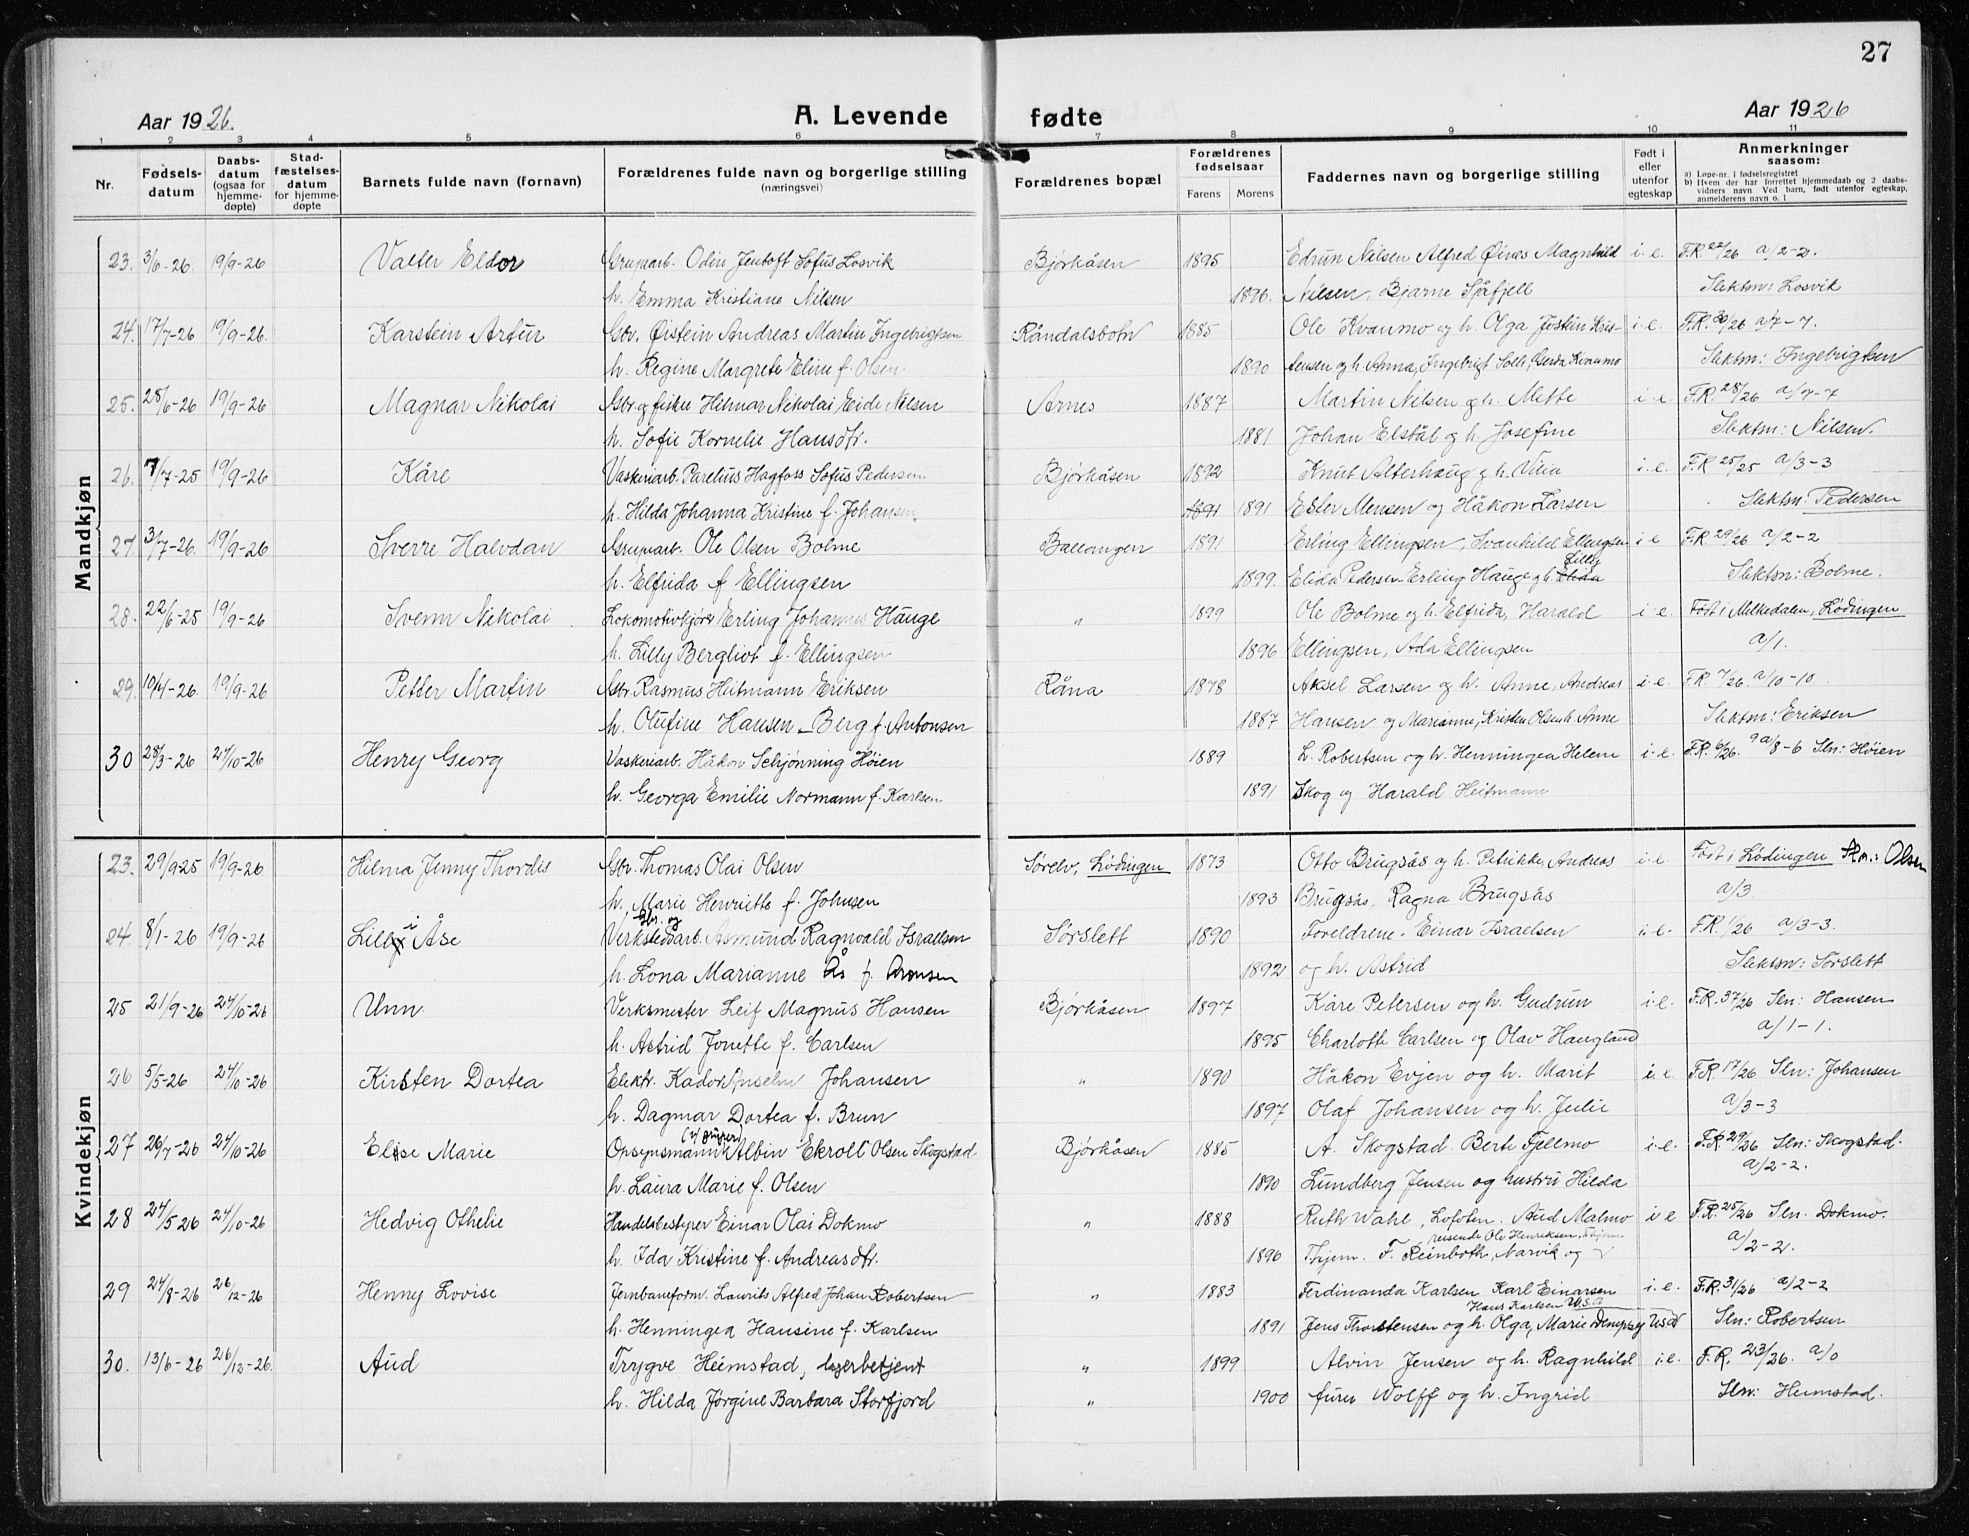 27
Aar 1926. A. Levende fødte Aar 1926
1 2 3 4 5 6 7 8 9 10 11
Nr. Fødselsdatum Daabsdatum (ogsaa for hjemmedøpte) Stadfæstelsesdatum for hjemmedøpte Barnets fulde navn (fornavn) Forældrenes fulde navn og borgerlige stilling (næringsvei) Forældrenes bopæl Forældrenes fødselsaar Farens Morens Faddernes navn og borgerlige stilling Født i eller utenfor egteskap Anmerkninger saasom:
a) Løpe-nr. i fødselsregistret
b) Hvem der har forrettet hjemmedaab og 2 daabsvidners navn Ved barn, født utenfor egteskap, anmelderens navn o. l
Mandkjøn
23. 3/6-26. 19/9-26 Valter Eldor Grupearb. Odin Jentoft Sofus Losvik Bjørkåsen 1895 Edrun Nilsen Alfred Øines Magnhild i-e. F.R. 22/26 a/2-2.
h. Emma Kristiane Nilsen 1896. Nilsen, Bjarne Sjåfjell Slektsn: Losvik
24. 17/7-26 19/9-26. Karstein Artur Gbr. Øistein Andreas Martin Ingebrigtsen Råndalsbotn 1885 Ole Kvaumo og h. Olga Jostein Kris- i-e. F.R. 30/26 a/7-7.
h. Regine Margrete Eline f. Olsen 1890 tensen og h. Anna, Ingebrigt Solli, Gerda Kvaumo Slektsn: Ingebrigtsen
25. 28/6-26 19/9-26 Magnar Nikolai Gbr og fisker Hilmar Nikolai Eide Nilsen Arnes 1887 Martin Nilsen og h. Mette i-e F.R. 28/26 a/7-7
h. Sofie Kornelie Hansdtr. 1881 Johan Elstål og h. Josefine Slektsn: Nilsen.
26. 7/7-25 19/9-26 Kåre Vaskeriarb. Parelius Hagfoss Sofus Pedersen Bjørkåsen 1892 Knut Alterhaug og h. Vilia i-e. F.R. 25/25 a/3-3
h. Hilda Johanna Kristine f. Johansen 1891 1891 Ester Mensen og Håkon Larsen Slektsn: Pedersen
27. 3/7-26. 19/9-26 Sverre Halvdan Grupearb. Ole Olsen Bolme Ballangen 1891 Erling Ellingsen, Svanhild Ellingsen i-e F.R. 29/26 a/2-2
h. Elfrida f Ellingsen 1899. Elida Pedersen Erling Hauge og h. Elida Lilly Slektsn: Bolme.
28. 22/6-25 19/9-26 Svenn Nikolai Lokomotivkjører Erling Johannes Hauge " 1899 Ole Bolme og h. Elfrida, Harald i-e. Født i Melkedalen, Lødingen
h. Lilly Bergliot f. Ellingsen 1896 Ellingsen, Ada Ellingsen a/1.
29. 19/4-26. 19/9-26 Petter Martin Gbr. Rasmus Heitmann Eriksen Råna 1878 Aksel Larsen og h. Anne, Andreas i-e. F.R. 7/26. a/10-10
h. Olufine Hansen Berg f. Antonsen 1887 Hansen og Marianne, Kristen Olsen h. Anne Slektsn: Eriksen
30 28/3-26 24/10-26 Henry Georg Vaskeriarb. Håkon Schjønning Høien 1889 L. Robertsen og h. Henningea Helene i-e. F.R. 6/26. 9 a/8-6 Sln: Høien
h. Georga Emilie Normann f. Karlsen 1891 Skog og Harald Heitmann
Kvindekjøn
23. 29/9-25 19/9-26 Hilma Jenny Thordis Gbr. Thomas Olai Olsen Sørelv, Lødingen 1873 Otto Brugsås og h. Petrikke, Andreas i-e. Født i Lødingen Sln.: Olsen
h. Marie Henriette f. Johnsen 1893 Brugsås, Ragna Brugsås a/3
24. 8/1-26 19/9-26 Lilly i Åse Verkstedarb. Gbr. og Asmund Ragnvald Israelsen Sørslett 1890 Foreldrene. Einar Israelsen i-e. F.R. 1/26 a/3-3.
h. Lona Marianne Ås f. Aronsen 1892 og h. Astrid Slektsn: Sørslett
25 21/9-26 24/10-26 Unn Verksmester Leif Magnus Hansen Bjørkåsen 1897 Kåre Petersen og h. Gudrun i-e. F.R. 37/26 Sln: Hansen
h. Astrid Jonette f. Carlsen 1895 Charlotte Carlsen og Olav Haugland a/1-1.
26 5/5-26 24/10-26 Kirsten Dortea Elektr. Kador Anselm Johansen " 1890 Håkon Evjen og h. Marit i.e. F.R. 17/26 Sln: Johansen
h. Dagmar Dortea f. Brun 1897 Olaf Johansen og h. Julie a/3-3
27 26/7-26 24/10-26 Elise Marie Opsynsmann (v/ gruper) Albin Ekroll Olsen Skogstad Bjørkåsen 1885 A. Skogstad. Berte Fjellmo i-e. F.R. 29/26 Sln: Skogstad.
h. Laura Marie f. Olsen 1890 Lundberg Jensen og hustru Hilda a/2-2.
28 24/5-26 24/10-26 Hedvig Othelie Handelsbestyrer Einar Olai Dokmo " 1888 Ruth Wahl, Lofoten. Aud Malmo i e F.R. 25/26 Sln. Dokmo.
h. Ida Kristine f. Andreasdtr. 1896 Trhjem. F. Reinboth, Narvik og reisende Ole Henriksen, Trhjem. a/2-2.
29 24/8-26 26/12-26 Henny Lovise Jernbaneform. Laurits Alfred Johan Robertsen " 1883 Ferdinanda Karlsen Karl Einarsen i.e. F.R. 31/26 a/2-2
h. Henningea Hansine f. Karlsen 1891 Jens Thorstensen og h. Olga, Hans Karlsen U.S.A Marie Dempsey USA Sln: Robertsen
30. 13/6-26 26/12-26. Aud Trygve Heimstad, lagerbetjent " 1899 Alvin Jensen og h. Ragnhild i.e. F.R. 23/26. a/0
h. Hilda Jørgine Barbara Storfjord " 1900 furer Wolff og h. Ingrid Sln: Heimstad.